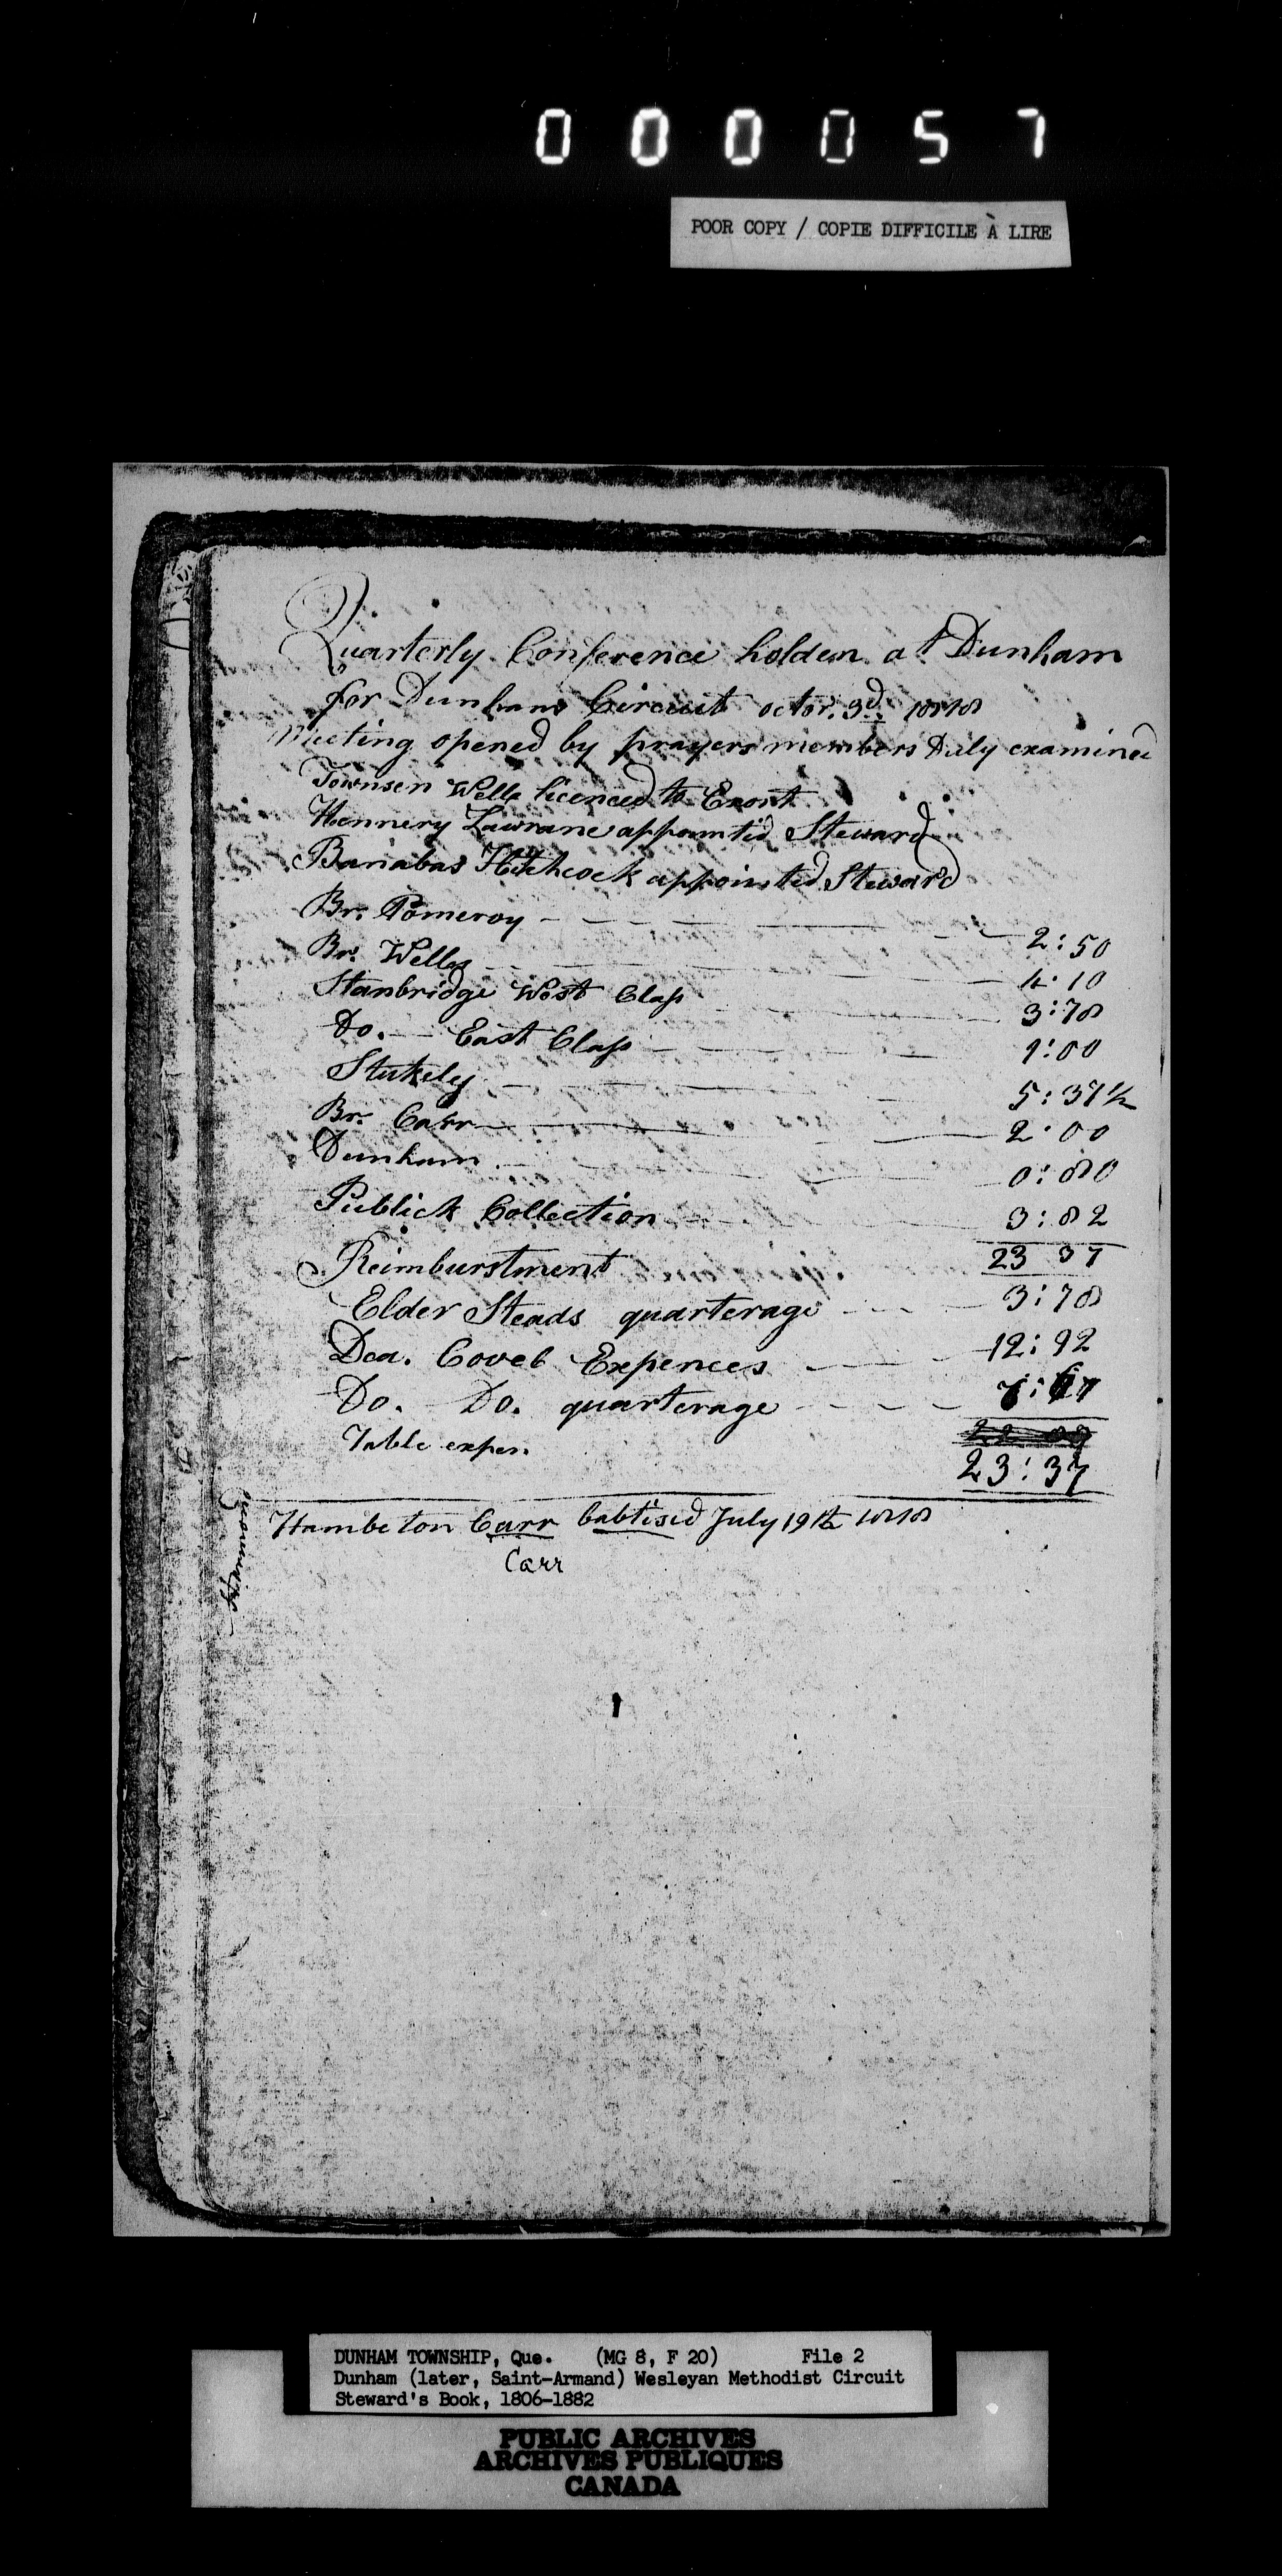 0 0 0 0 5 7
POOR COPY / COPIE DIFFICILE À LIRE
Quarterly Conference holden at Dunham
for Dunham Circuit octor. 3d. 1818
Meeting opened by prayers members Duly examined
Townsen Wells licenced to Exort
Hennery Lawrane appointed Steward
Barnabas Hitchcock appointed Steward
Br. Pomeroy 2:50
Br. Wells 4:10
Stanbridge West Class 3:78
Do. East Class 1:00
Stukely 5:37½
Br. Carr 2:00
Dunham 0:80
Publick Collection 3:82
23 37
Reimburstment
Elder Steads quarterage 3:78
Dea. Covel Expences 12:92
Do. Do. quarterage
Table expen.
23:37
Hambeton Carr babtised July 19th 1818
Carr
DUNHAM TOWNSHIP, Que. (MG 8, F 20) File 2
Dunham (later, Saint-Armand) Wesleyan Methodist Circuit
Steward's Book, 1806-1882
PUBLIC ARCHIVES
ARCHIVES PUBLIQUES
CANADA